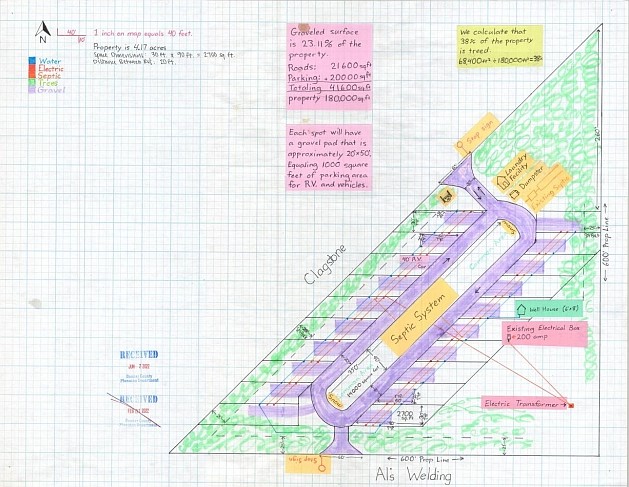 N
40'
1 inch on map equals 40 feet.
Property is 4.17 acres
Space Dimensions: 30 ft x 90 ft = 2700 sq.ft.
Distance Between R.V. 20 ft.
Water
Electric
Septic
Trees
Gravel
Graveled surface
is 23.11% of the
property.
Roads: 21600 sqft
Parking: +20000 sqft
Totaling 41600 sqft
property 180,000 sqft
Each spot will have
a gravel pad that is
approximately 20'x50'.
Equaling 1000 square
feet of parking area
for R.V. and vehicles.
We calculate that
38% of the property
is treed.
68,400 ft² ÷ 180,000 ft² = 38%
Stop Sign
Laundry
Facility
Dumpster
260'
600' Prop Line
Clagstone
40' R.V.
Car
Septic System
Well House (6x8)
Existing Electrical Box
200 amp
Electric Transformer
2700
sq. ft.
RECEIVED
RECEIVED
Stop Sign
600' Prop Line
Al's Welding